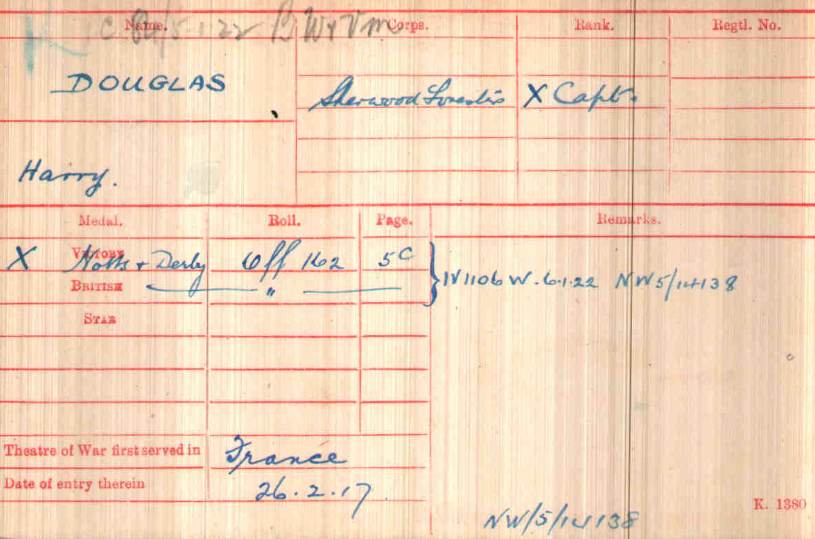 Name. Corps. Rank. Regtl. No.
5.1.22 B W & V m
DOUGLAS
Sherwood Foresters X Capt.
Harry.
Medal. Roll. Page. Remarks.
X VICTORY Notts & Derby Off 162 5C
BRITISH " IV1106 W. 6.1.22 NW5/14138
STAR
Theatre of War first served in France
Date of entry therein 26.2.17.
K. 1380
NW/5/14138